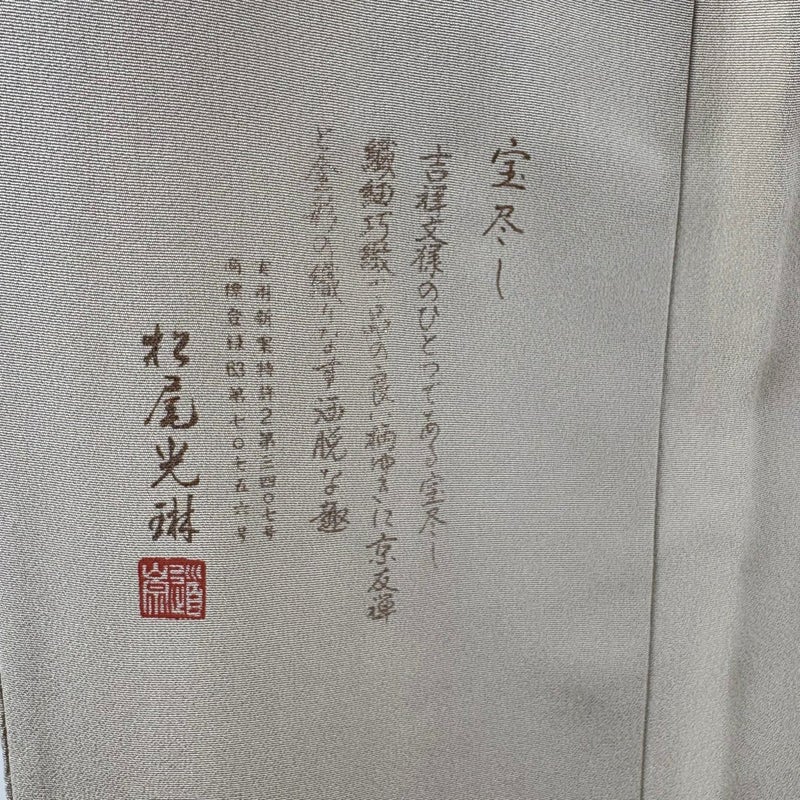 宝尽し
吉祥文様のひとつである宝尽し
繊細巧緻な品の良い柄ゆきに京友禅
と金彩の織りなす洒脱な趣
実用新案特許2第三四〇七号
商標登録昭第七〇七五六号
松尾光琳